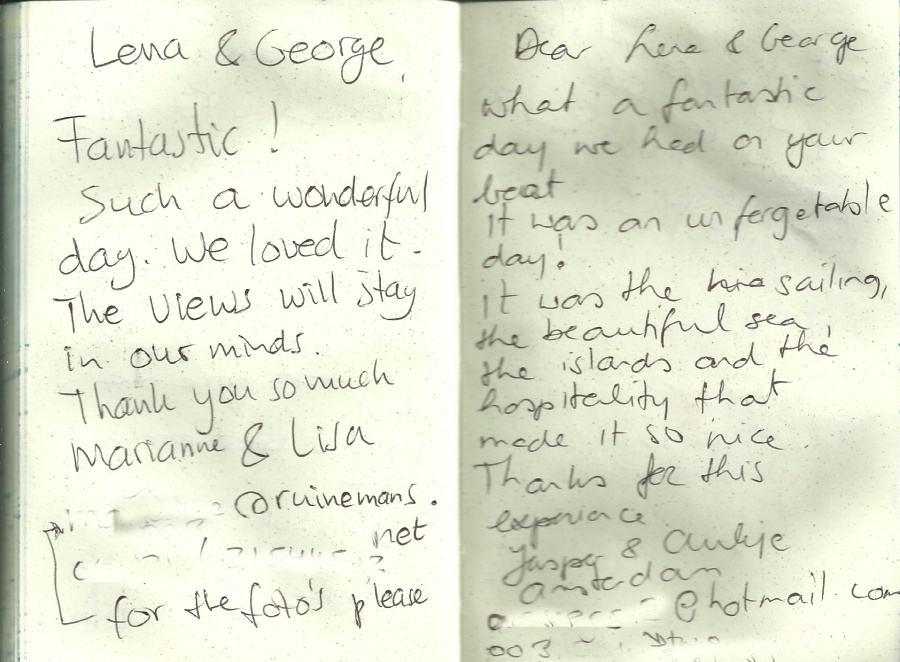 Lena & George,
Fantastic!
Such a wonderful
day. We loved it.
The views will stay
in our minds.
Thank you so much
Marianne & Lisa
@ruinemans.
net
for the foto's please
Dear Lena & George
what a fantastic
day we had on your
boat
It was an unforgetable
day!
it was the sailing,
the beautiful sea,
the islands and the
hospitality that
made it so nice.
Thanks for this
experience
Jasper & 
Amsterdam
@hotmail.com
003